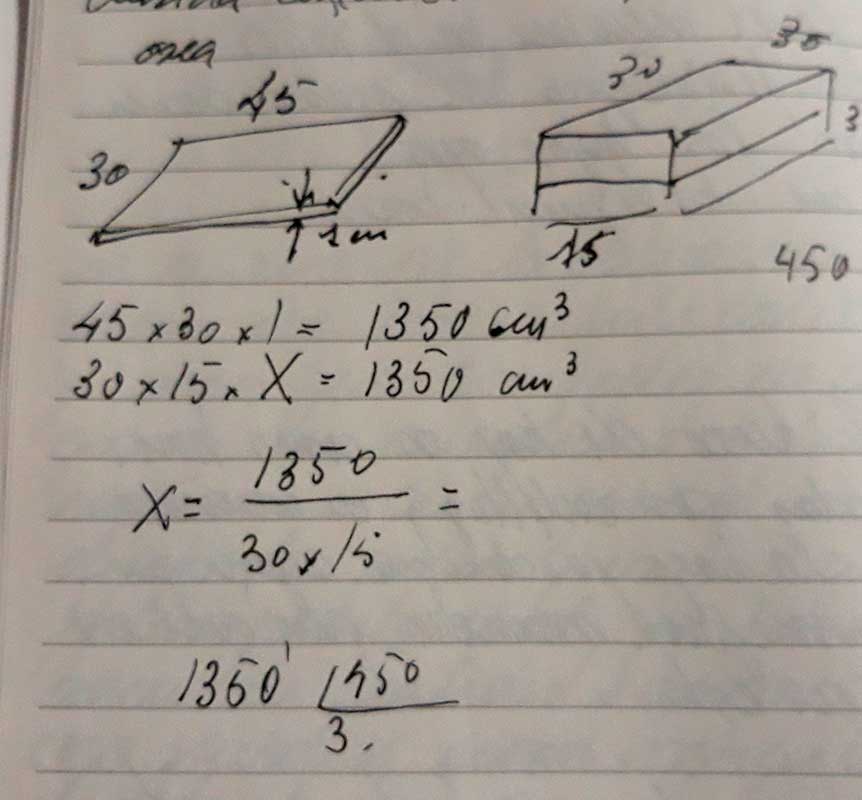 45
30
1 cm
30
30
3
15
450
45 × 30 × 1 = 1350 cm³
30 × 15 × X = 1350 cm³
X = 1350 / 30 × 15 =
1350 450
3.